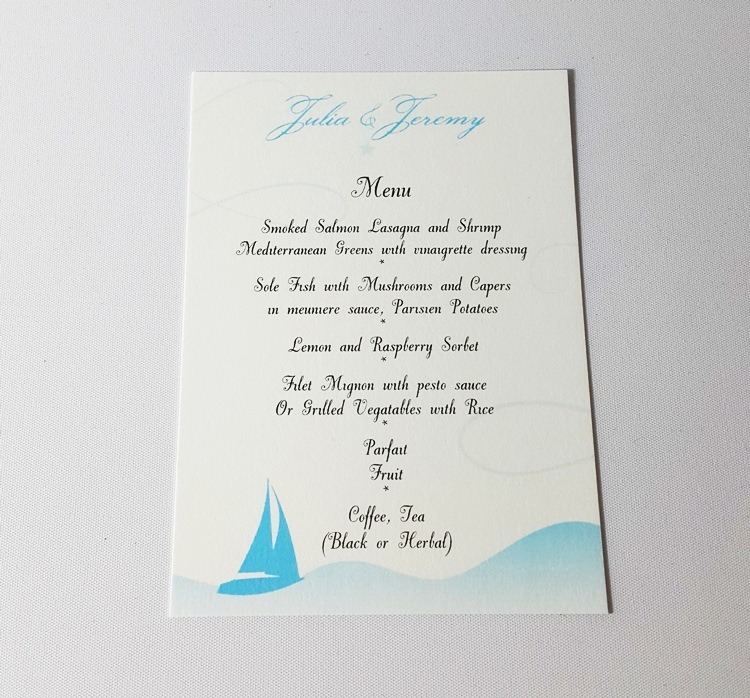 Julia & Jeremy
Menu
Smoked Salmon Lasagna and Shrimp
Mediterranean Greens with vinaigrette dressing
*
Sole Fish with Mushrooms and Capers
in meuniere sauce, Parisien Potatoes
*
Lemon and Raspberry Sorbet
*
Filet Mignon with pesto sauce
Or Grilled Vegatables with Rice
*
Parfait
Fruit
*
Coffee, Tea
(Black or Herbal)